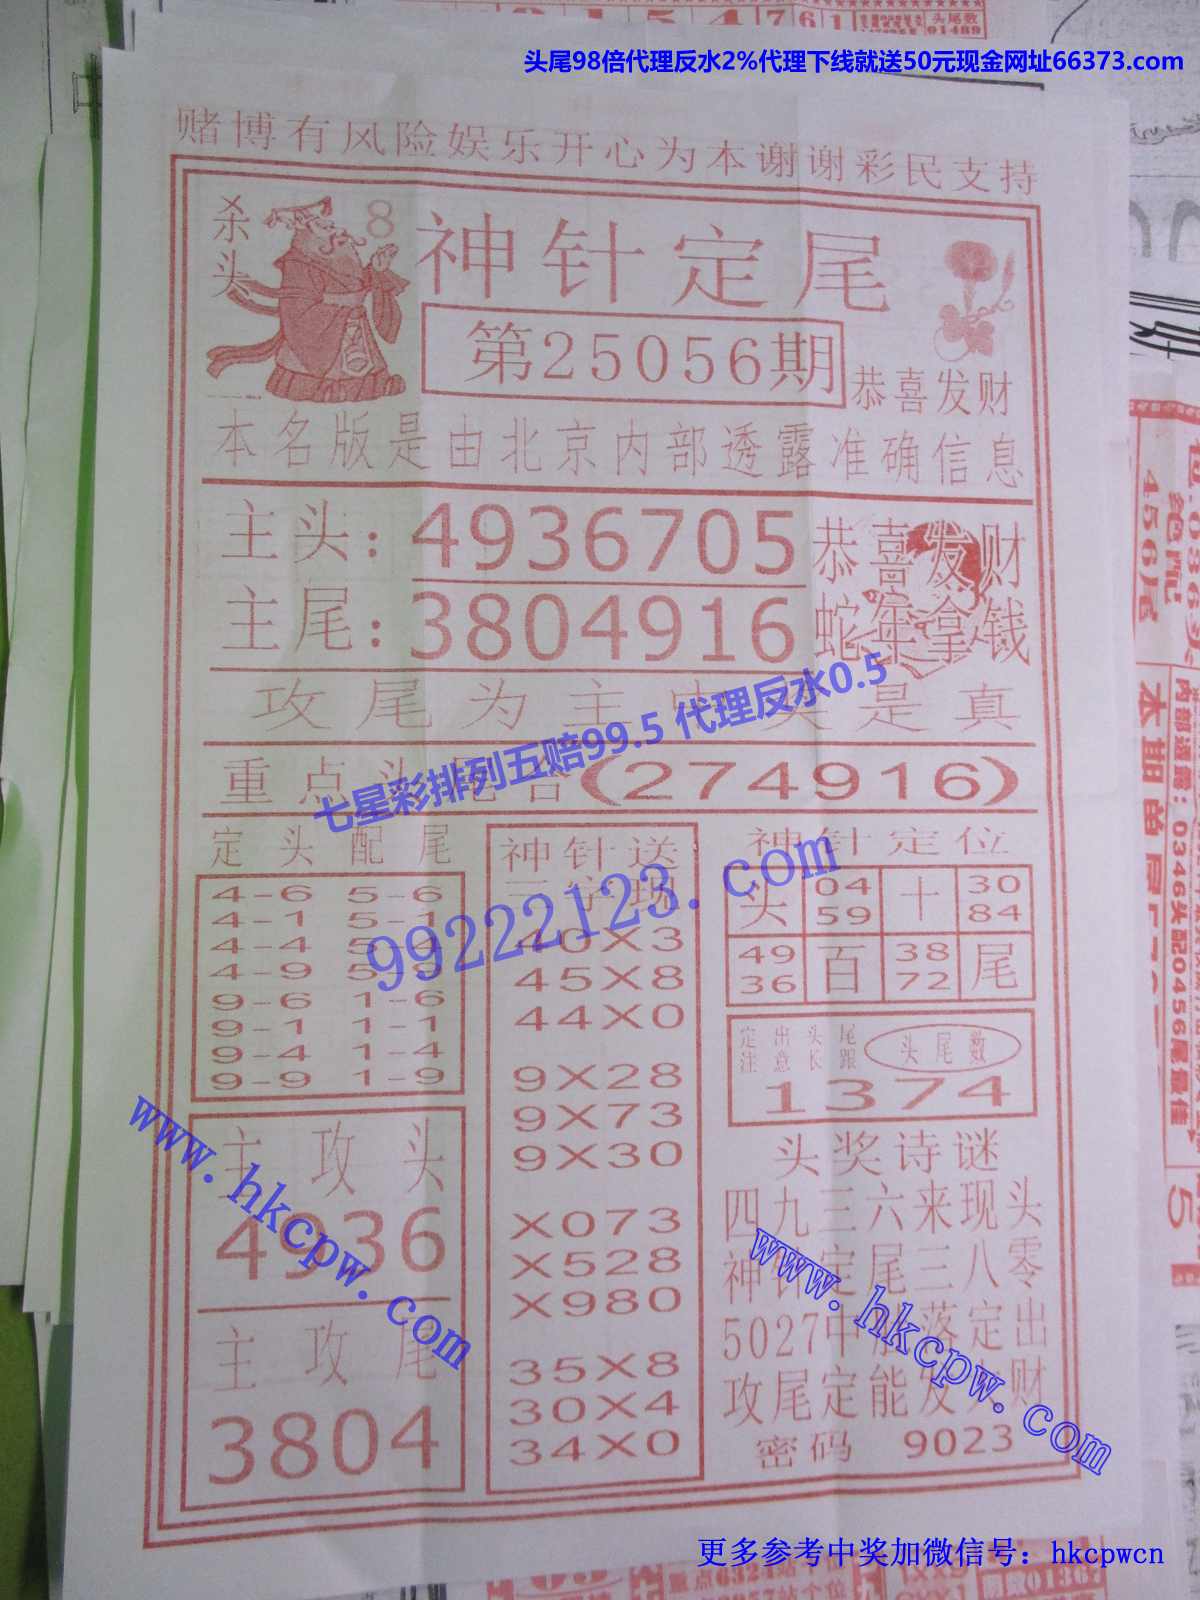 头尾98倍代理反水2%代理下线就送50元现金网址66373.com
赌博有风险娱乐开心为本谢谢彩民支持
杀头
8
神针定尾
第25056期
恭喜发财
本名版是由北京内部透露准确信息
主头:4936705
恭喜发财
主尾:3804916
蛇年拿钱
攻尾为主 是真
七星彩排列五赔99.5 代理反水0.5
重点头 合(274916)
定头配尾
4-6 5-6
4-1 5-1
4-4 5-4
4-9 5-9
9-6 1-6
9-1 1-1
9-4 1-4
9-9 1-9
神针送
三字现
40X3
45X8
44X0
9X28
9X73
9X30
X073
X528
X980
35X8
30X4
34X0
99222123.com
神针定位
头 04 59 十 30 84
49 36 百 38 72 尾
定出头尾
注意长跟
头尾数
1374
主攻头
4936
主攻尾
3804
头奖诗谜
四九三六来现头
神针定尾三八零
5027中 落定出
攻尾定能发大财
密码 9023
www.hkcpw.com
www.hkcpw.com
更多参考中奖加微信号：hkcpwcn
456尾
绝门
内部透露：0346头配0456尾最佳
头尾数
01489